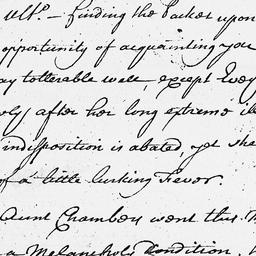 Ult.o – finding the Packet upon
opportunity of acquainting you
ay tollerable well, except Evey
after her long extreme il
indisposition is abated, yet she
of a little lurking Fever.
Aunt Chambers went this M
a Melancholy Condition.